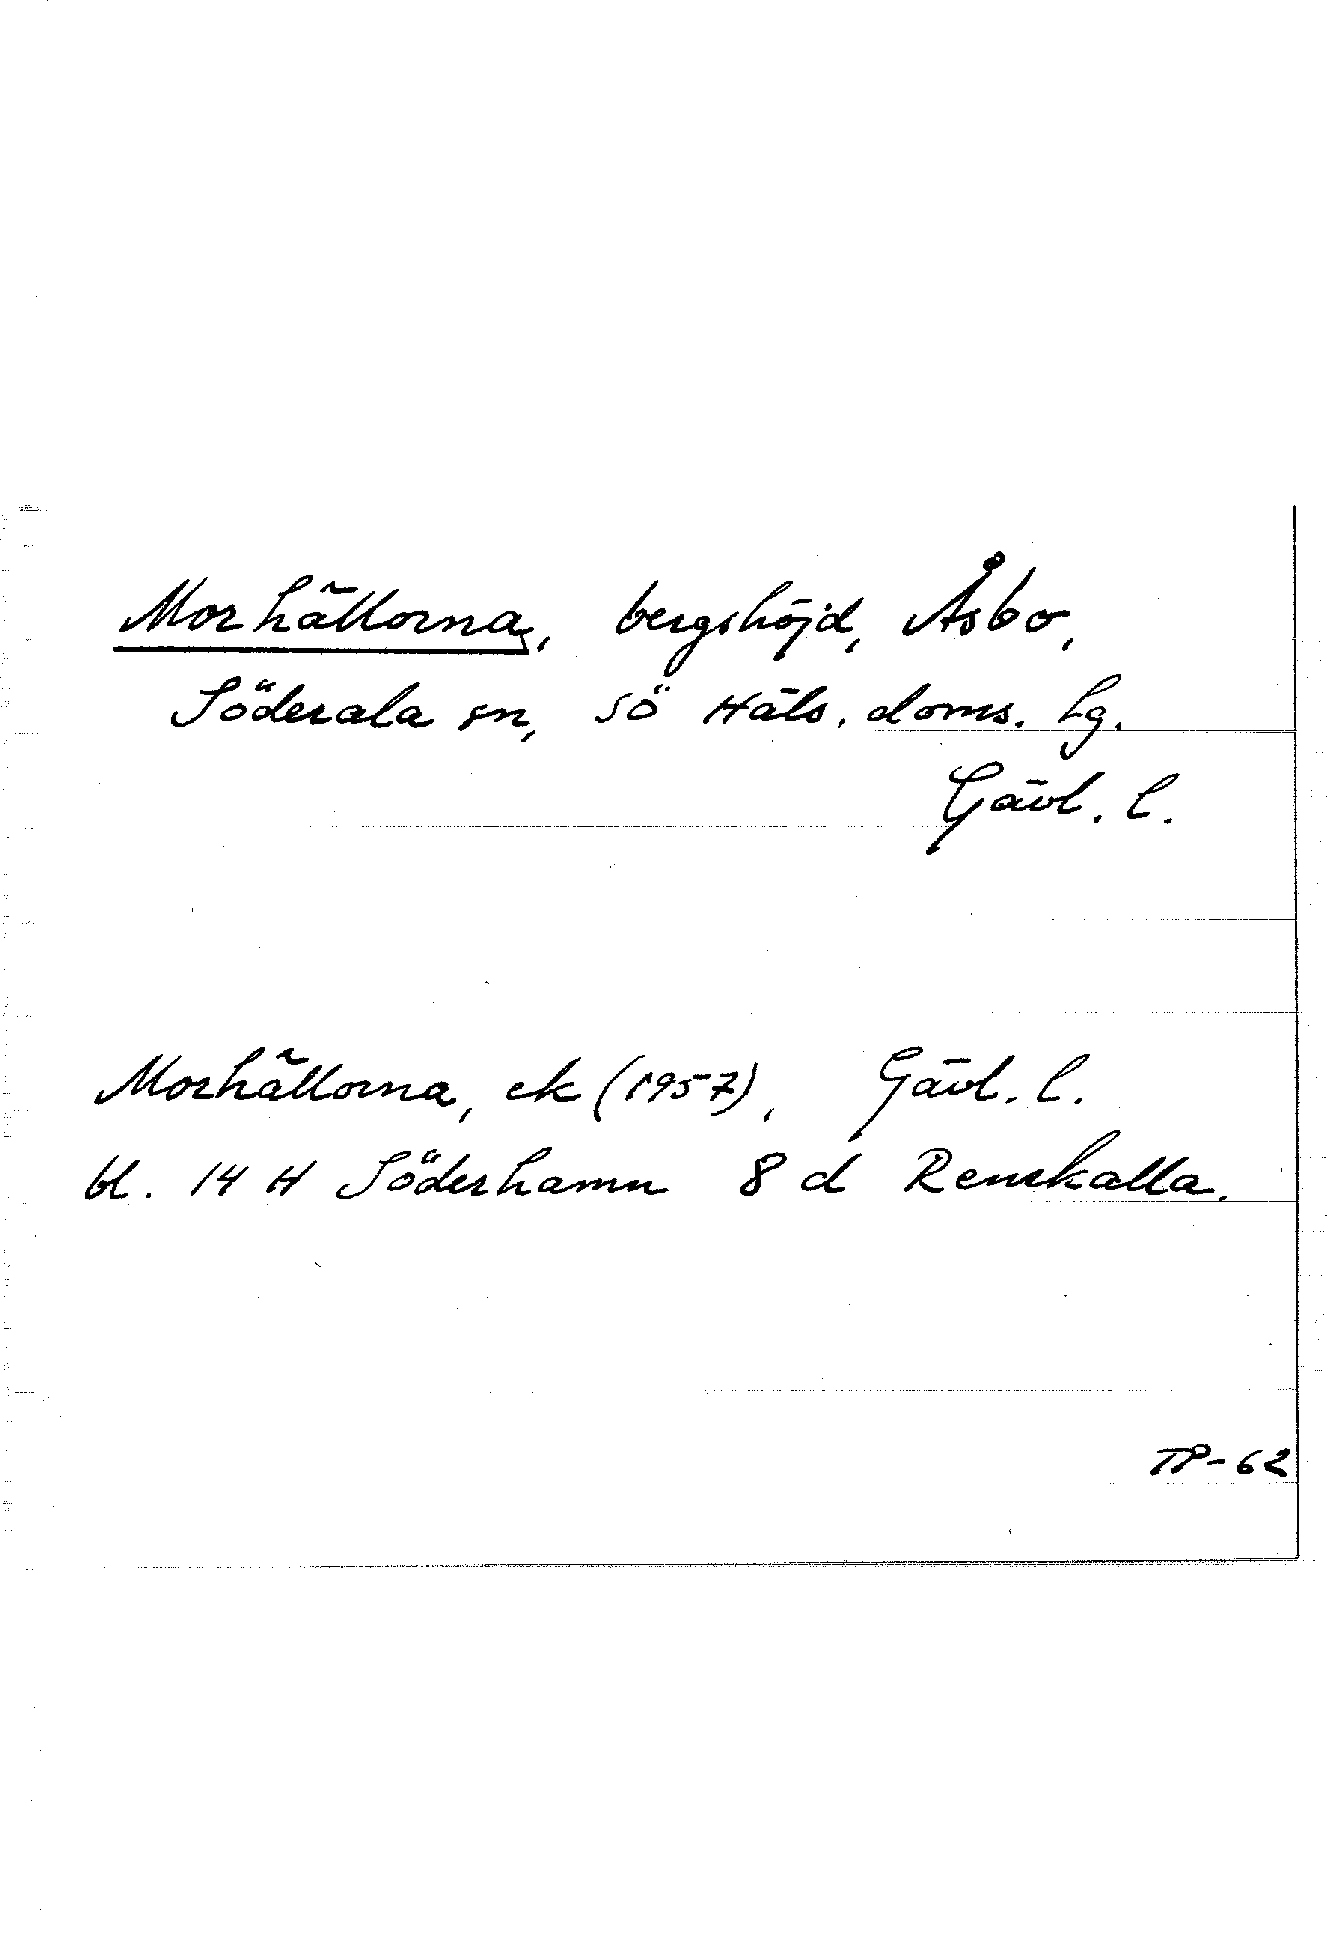 Morhällorna, bergshöjd, Åsbo,
Söderala sn, SÖ Häls. doms. hg.
Gävl. l.
Morhällorna, ek (1957), Gävl. l.
bl. 14 H Söderhamn 8 d Renskalla.
TP-62